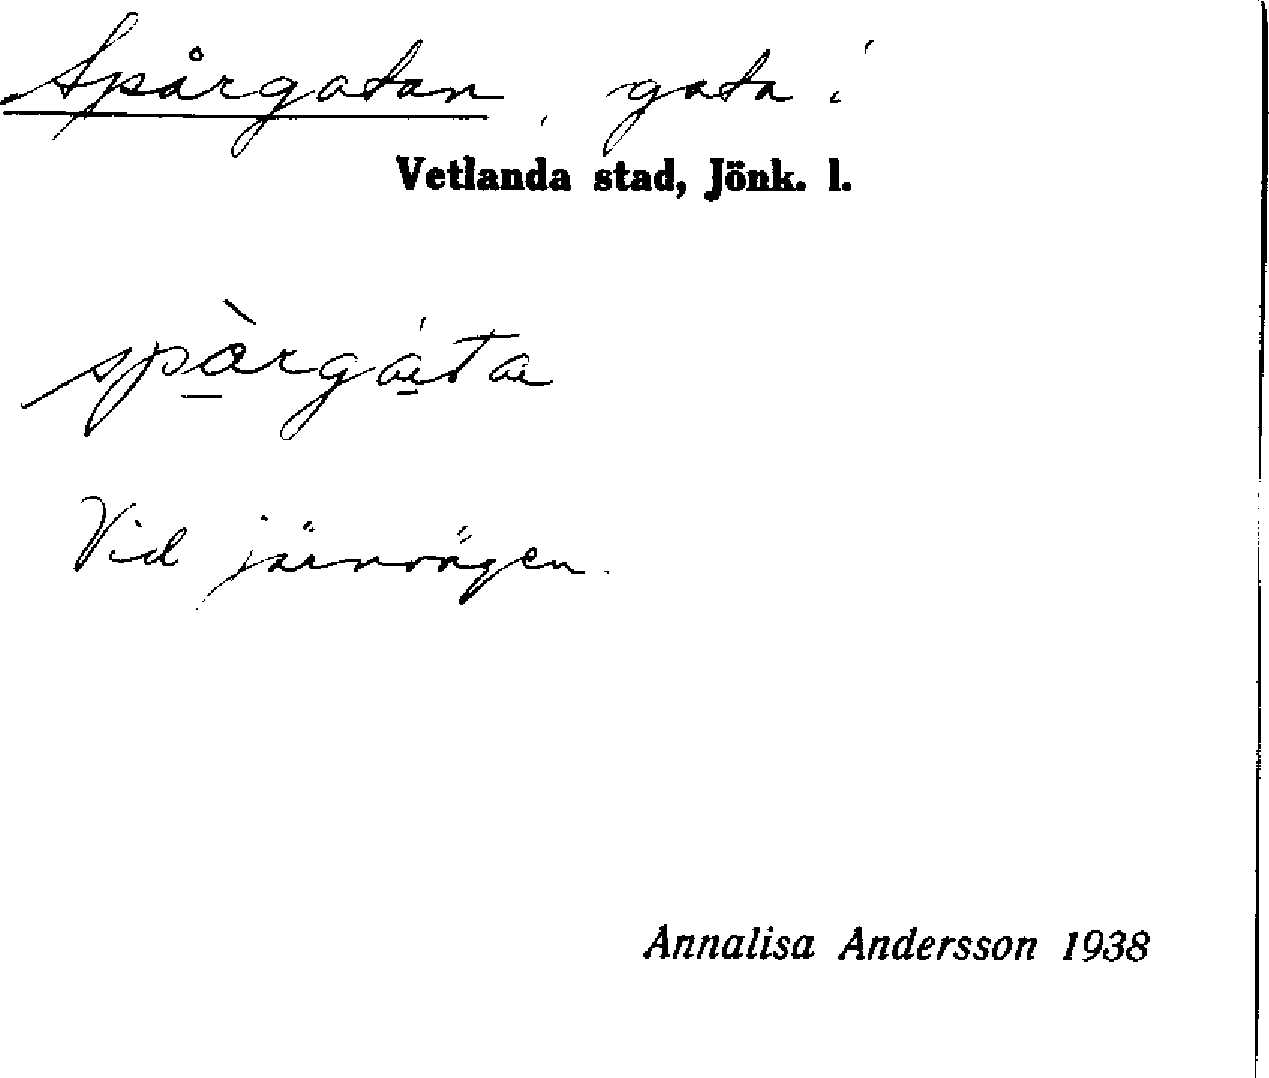 Spårgatan, gata i
Vetlanda stad, Jönk. l.
spàrgáta
Vid järnvägen.
Annalisa Andersson 1938